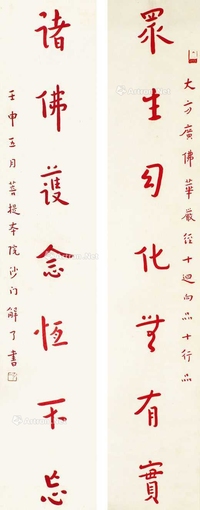 大方廣佛華嚴經十迴向品十行品
眾生幻化無有實
諸佛護念恆不忘
壬申五月菩提本院沙门解了書